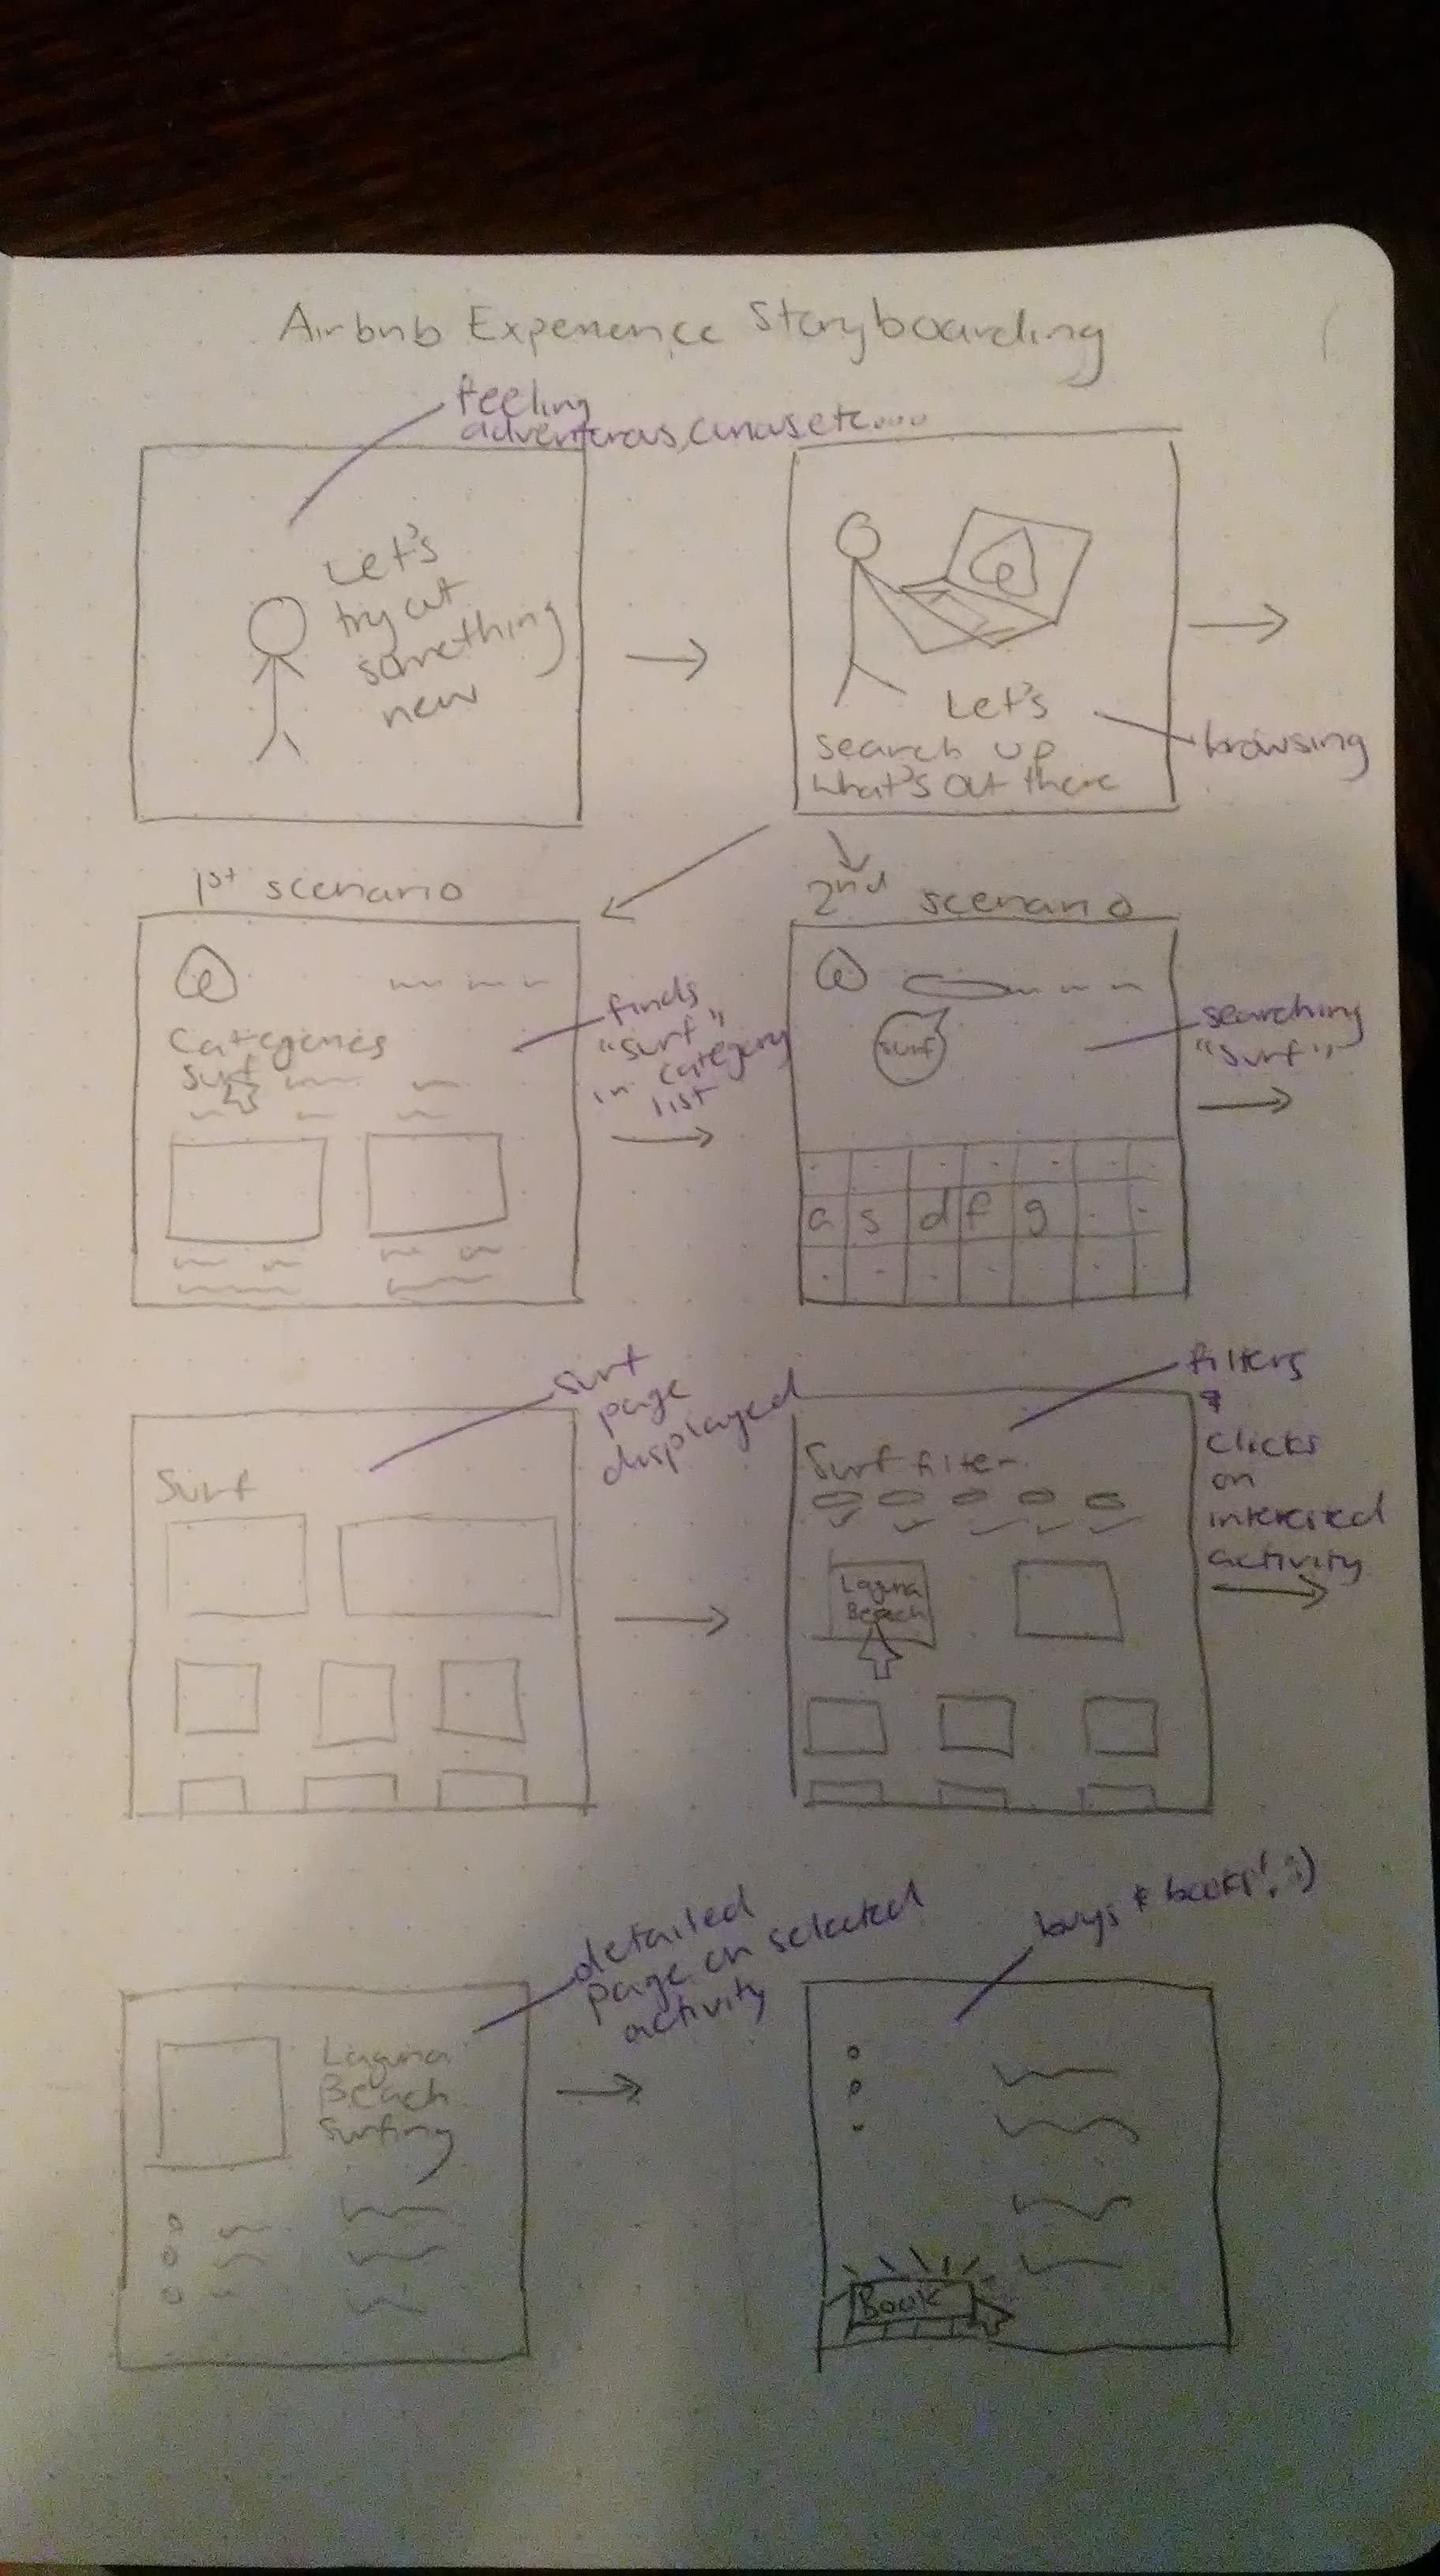 Airbnb Experience Storyboarding
feeling
adventurous, curious etc....
Let's
try out
something
new
Let's
search up
what's out there
browsing
1st scenario
Categories
Surf
finds
"surf"
in category
list
2nd scenario
surf
searching
"surf"
a s d f g
surf
page
displayed
Surf
filters
&
clicks
on
interested
activity
Surf filter
Laguna
Beach
detailed
page on selected
activity
Laguna
Beach
Surfing
buys & books! :)
Book